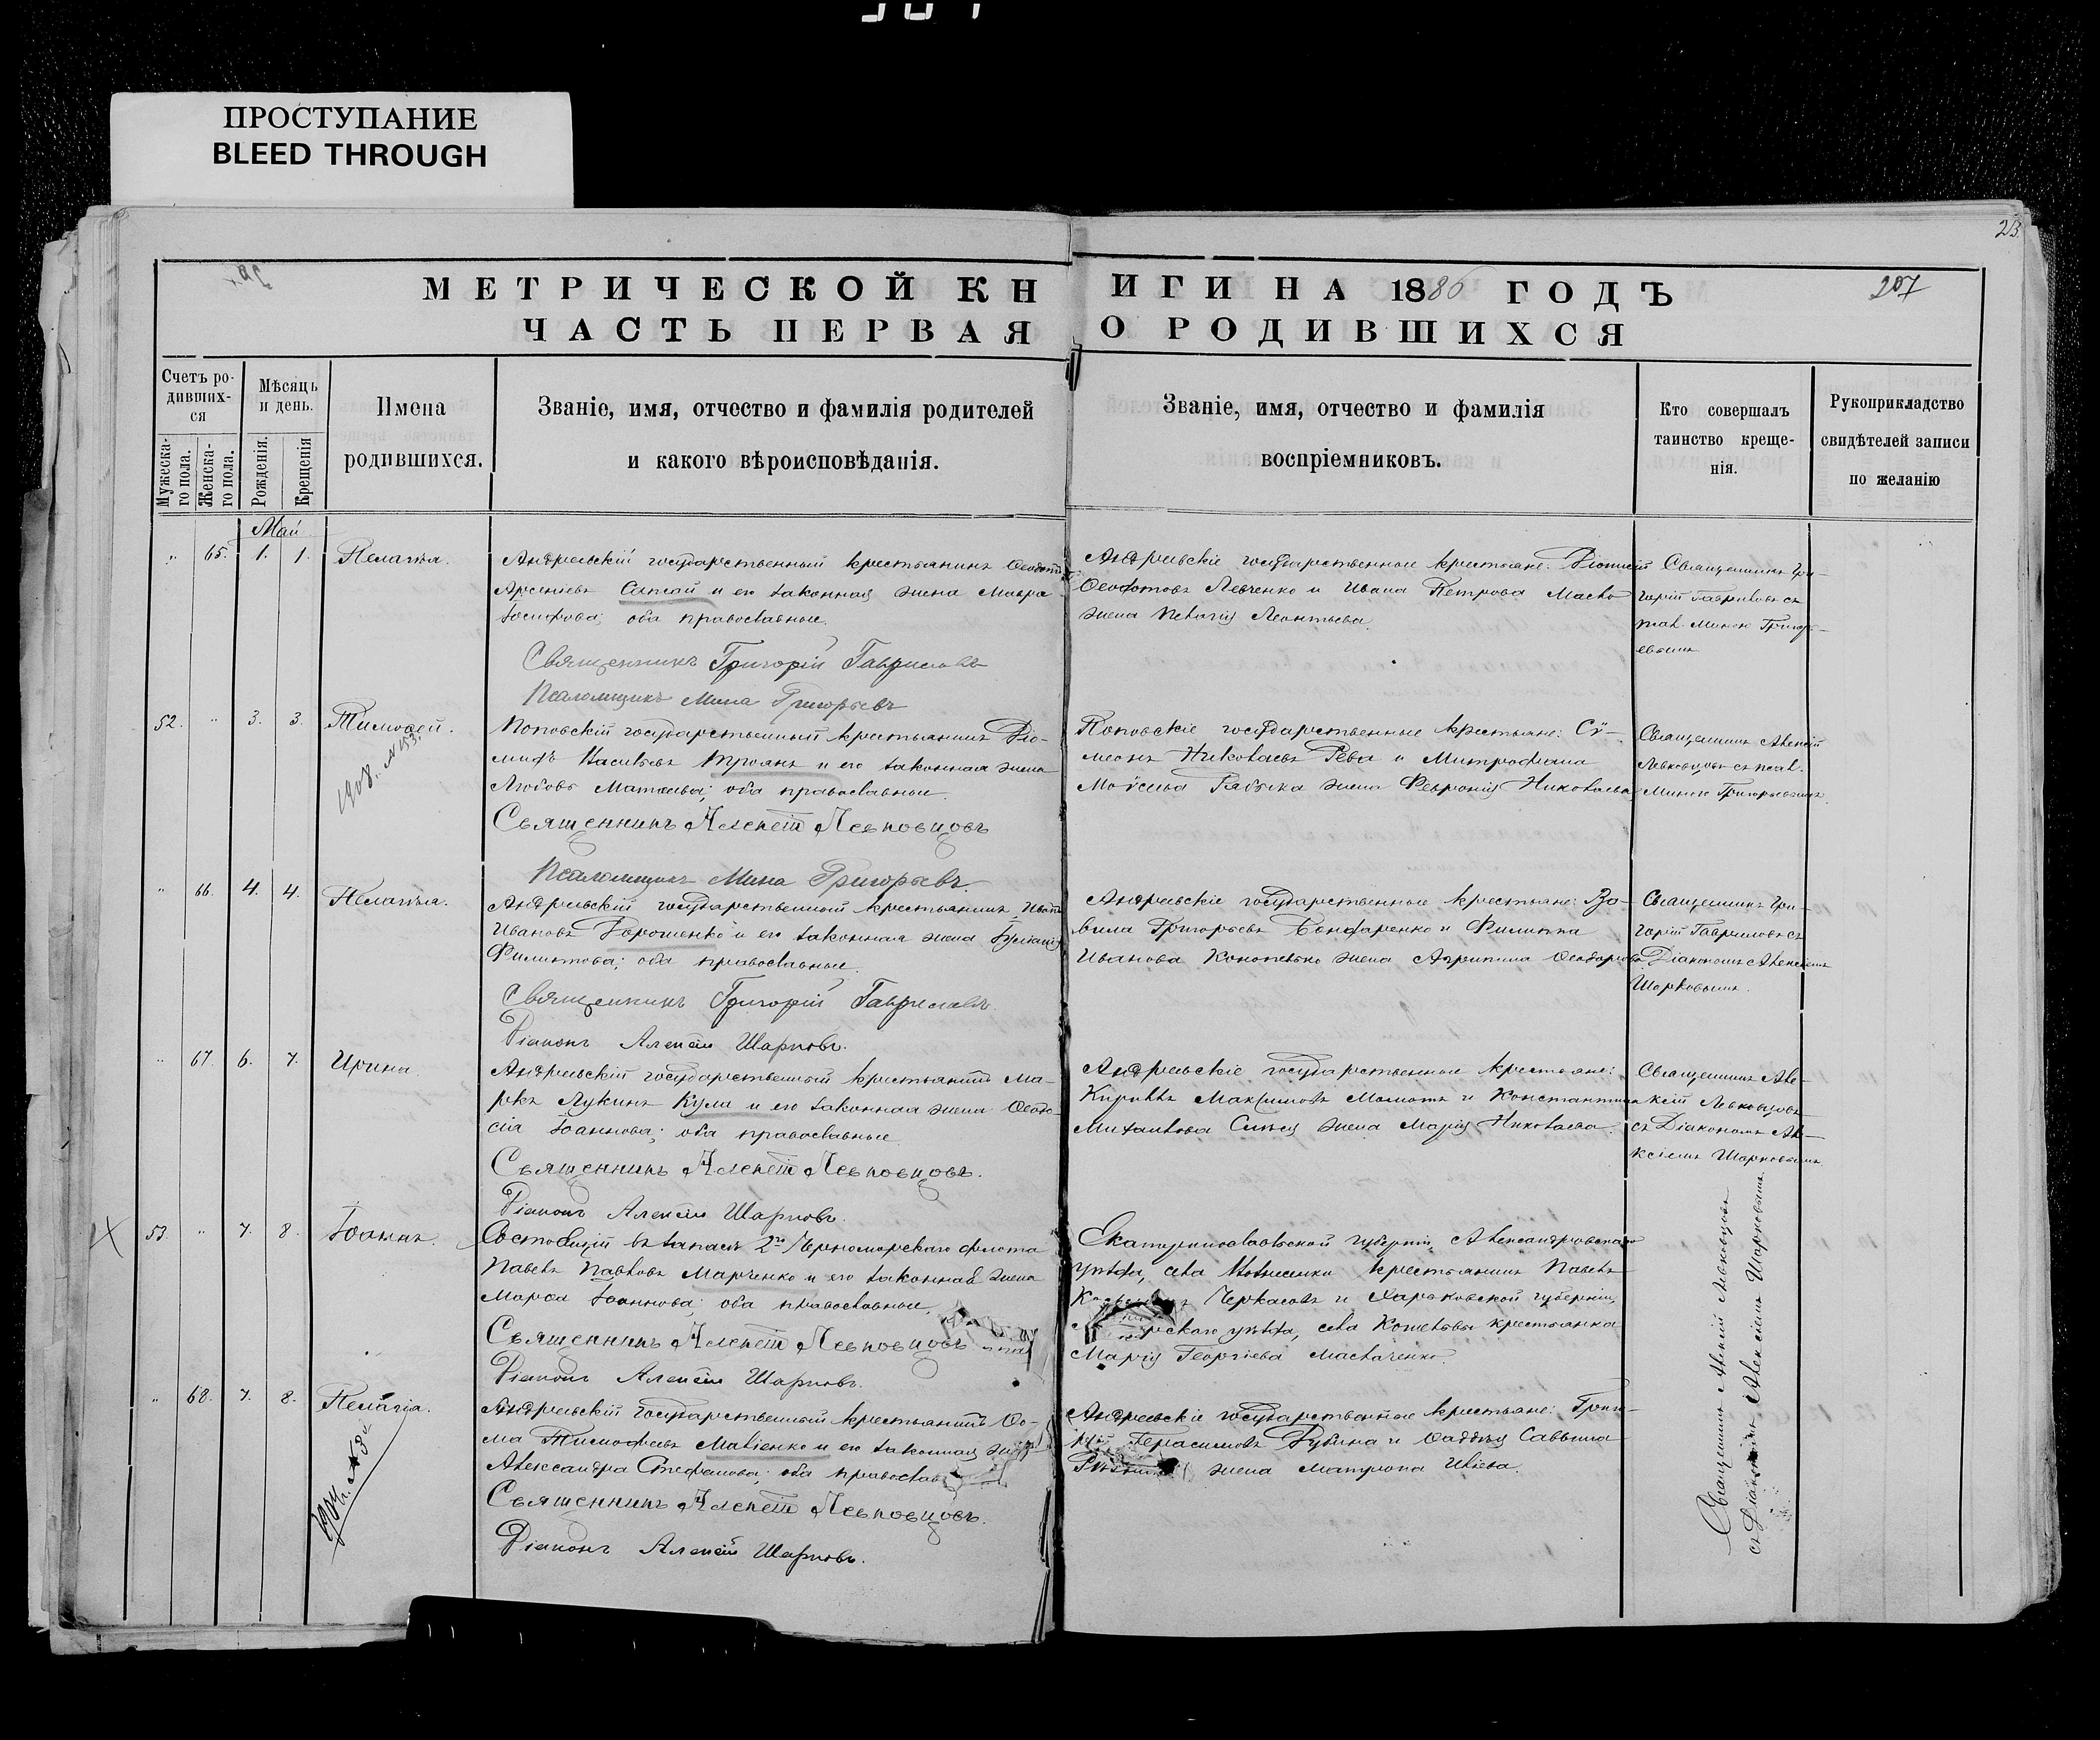 ПРОСТУПАНИЕ
BLEED THROUGH
23.
МЕТРИЧЕСКОЙ КНИГИ НА 1886 ГОДЪ
207
ЧАСТЬ ПЕРВАЯ О РОДИВШИХСЯ
Счетъ ро-
дивших-
ся
Мужеска-
го пола.
Женска-
го пола.
Мѣсяцъ
и день.
Рожденія.
Крещенія
Имена
родившихся.
Званіе, имя, отчество и фамилія родителей
и какого вѣроисповѣданія.
Званіе, имя, отчество и фамилія
воспріемниковъ.
Кто совершалъ
таинство креще-
нія.
Рукоприкладство
свидѣтелей записи
по желанію
Май
„ 65. 1. 1. Пелагѣя.
Андреевскій государственный крестьянинъ Ѳеодотъ
Арсеніевъ и его законная жена Мавра
Іосифова; оба православные.
Священникъ Григорій Гавриловъ
Псаломщикъ Мина Григорьевъ
Андреевскіе государственные крестьяне: Діонисій
Ѳеодотовъ Левченко и Ивана Петрова
жена Пелагія Леонтьева.
Священникъ Гри-
горій Гавриловъ съ
псал. Миною Григорь-
евымъ
52. „ 3. 3. Тимоѳей.
1908. №153.
Поповскій государственный крестьянинъ Діо-
мидъ Васильевъ Троянъ и его законная жена
Любовь Матѳеева; оба православные.
Священникъ Алексѣй Левковцовъ
Псаломщикъ Мина Григорьевъ.
Поповскіе государственные крестьяне: Сѵ-
меонъ Николаевъ Рева и Митрофана
Моѵсеева Рябыка жена Февронія Николаева
Священникъ Алексѣй
Левковцовъ съ псал.
Миною Григорьевымъ.
„ 66. 4. 4. Пелагѣя.
Андреевскій государственный крестьянинъ Иванъ
Ивановъ Дорошенко и его законная жена Евлалія
Филиппова; оба православные.
Священникъ Григорій Гавриловъ.
Діаконъ Алексѣй Шарковъ.
Андреевскіе государственные крестьяне: Во-
вила Григорьевъ Бондаренко и Филиппа
Иванова жена Агрипина Ѳеодорова
Священникъ Гри-
горій Гавриловъ съ
Діакономъ Алексѣемъ
Шарковымъ.
„ 67. 6. 7. Ирина.
Андреевскій государственный крестьянинъ Ма-
ркъ Лукинъ Кула и его законная жена Ѳеодо-
сія Іоаннова; оба православные.
Священникъ Алексѣй Левковцовъ.
Діаконъ Алексѣй Шарковъ.
Андреевскіе государственные крестьяне:
Кириллъ Максимовъ Момотъ и Константина
Михайлова жена Марія Николаева.
Священникъ Але-
ксѣй Левковцовъ
съ Діакономъ Але-
ксѣемъ Шарковымъ.
53. „ 7. 8. Іоаннъ.
Состоящій въ запасѣ 2го Черноморскаго флота
Павелъ Павловъ Марченко и его законная жена
Марѳа Іоаннова; оба православные.
Священникъ Алексѣй Левковцовъ
Діаконъ Алексѣй Шарковъ.
Екатеринославской губерніи, Александровскаго
уѣзда, села Вознесенки крестьянинъ Павелъ
Черкасовъ и Харьковской губерніи,
уѣзда, села крестьянка
Марія Георгіева
„ 68. 7. 8. Пелагія.
Андреевскій государственный крестьянинъ Ѳо-
ма Тимофеевъ Матіенко и его законная жена
Александра Стефанова; оба православ
Священникъ Алексѣй Левковцовъ.
Діаконъ Алексѣй Шарковъ.
Андреевскіе государственные крестьяне:
Герасимовъ Дубина и Ѳаддѣя Саввина
жена Матрона
Священникъ Алексѣй Левковцовъ
съ Діакономъ Алексѣемъ Шарковымъ.